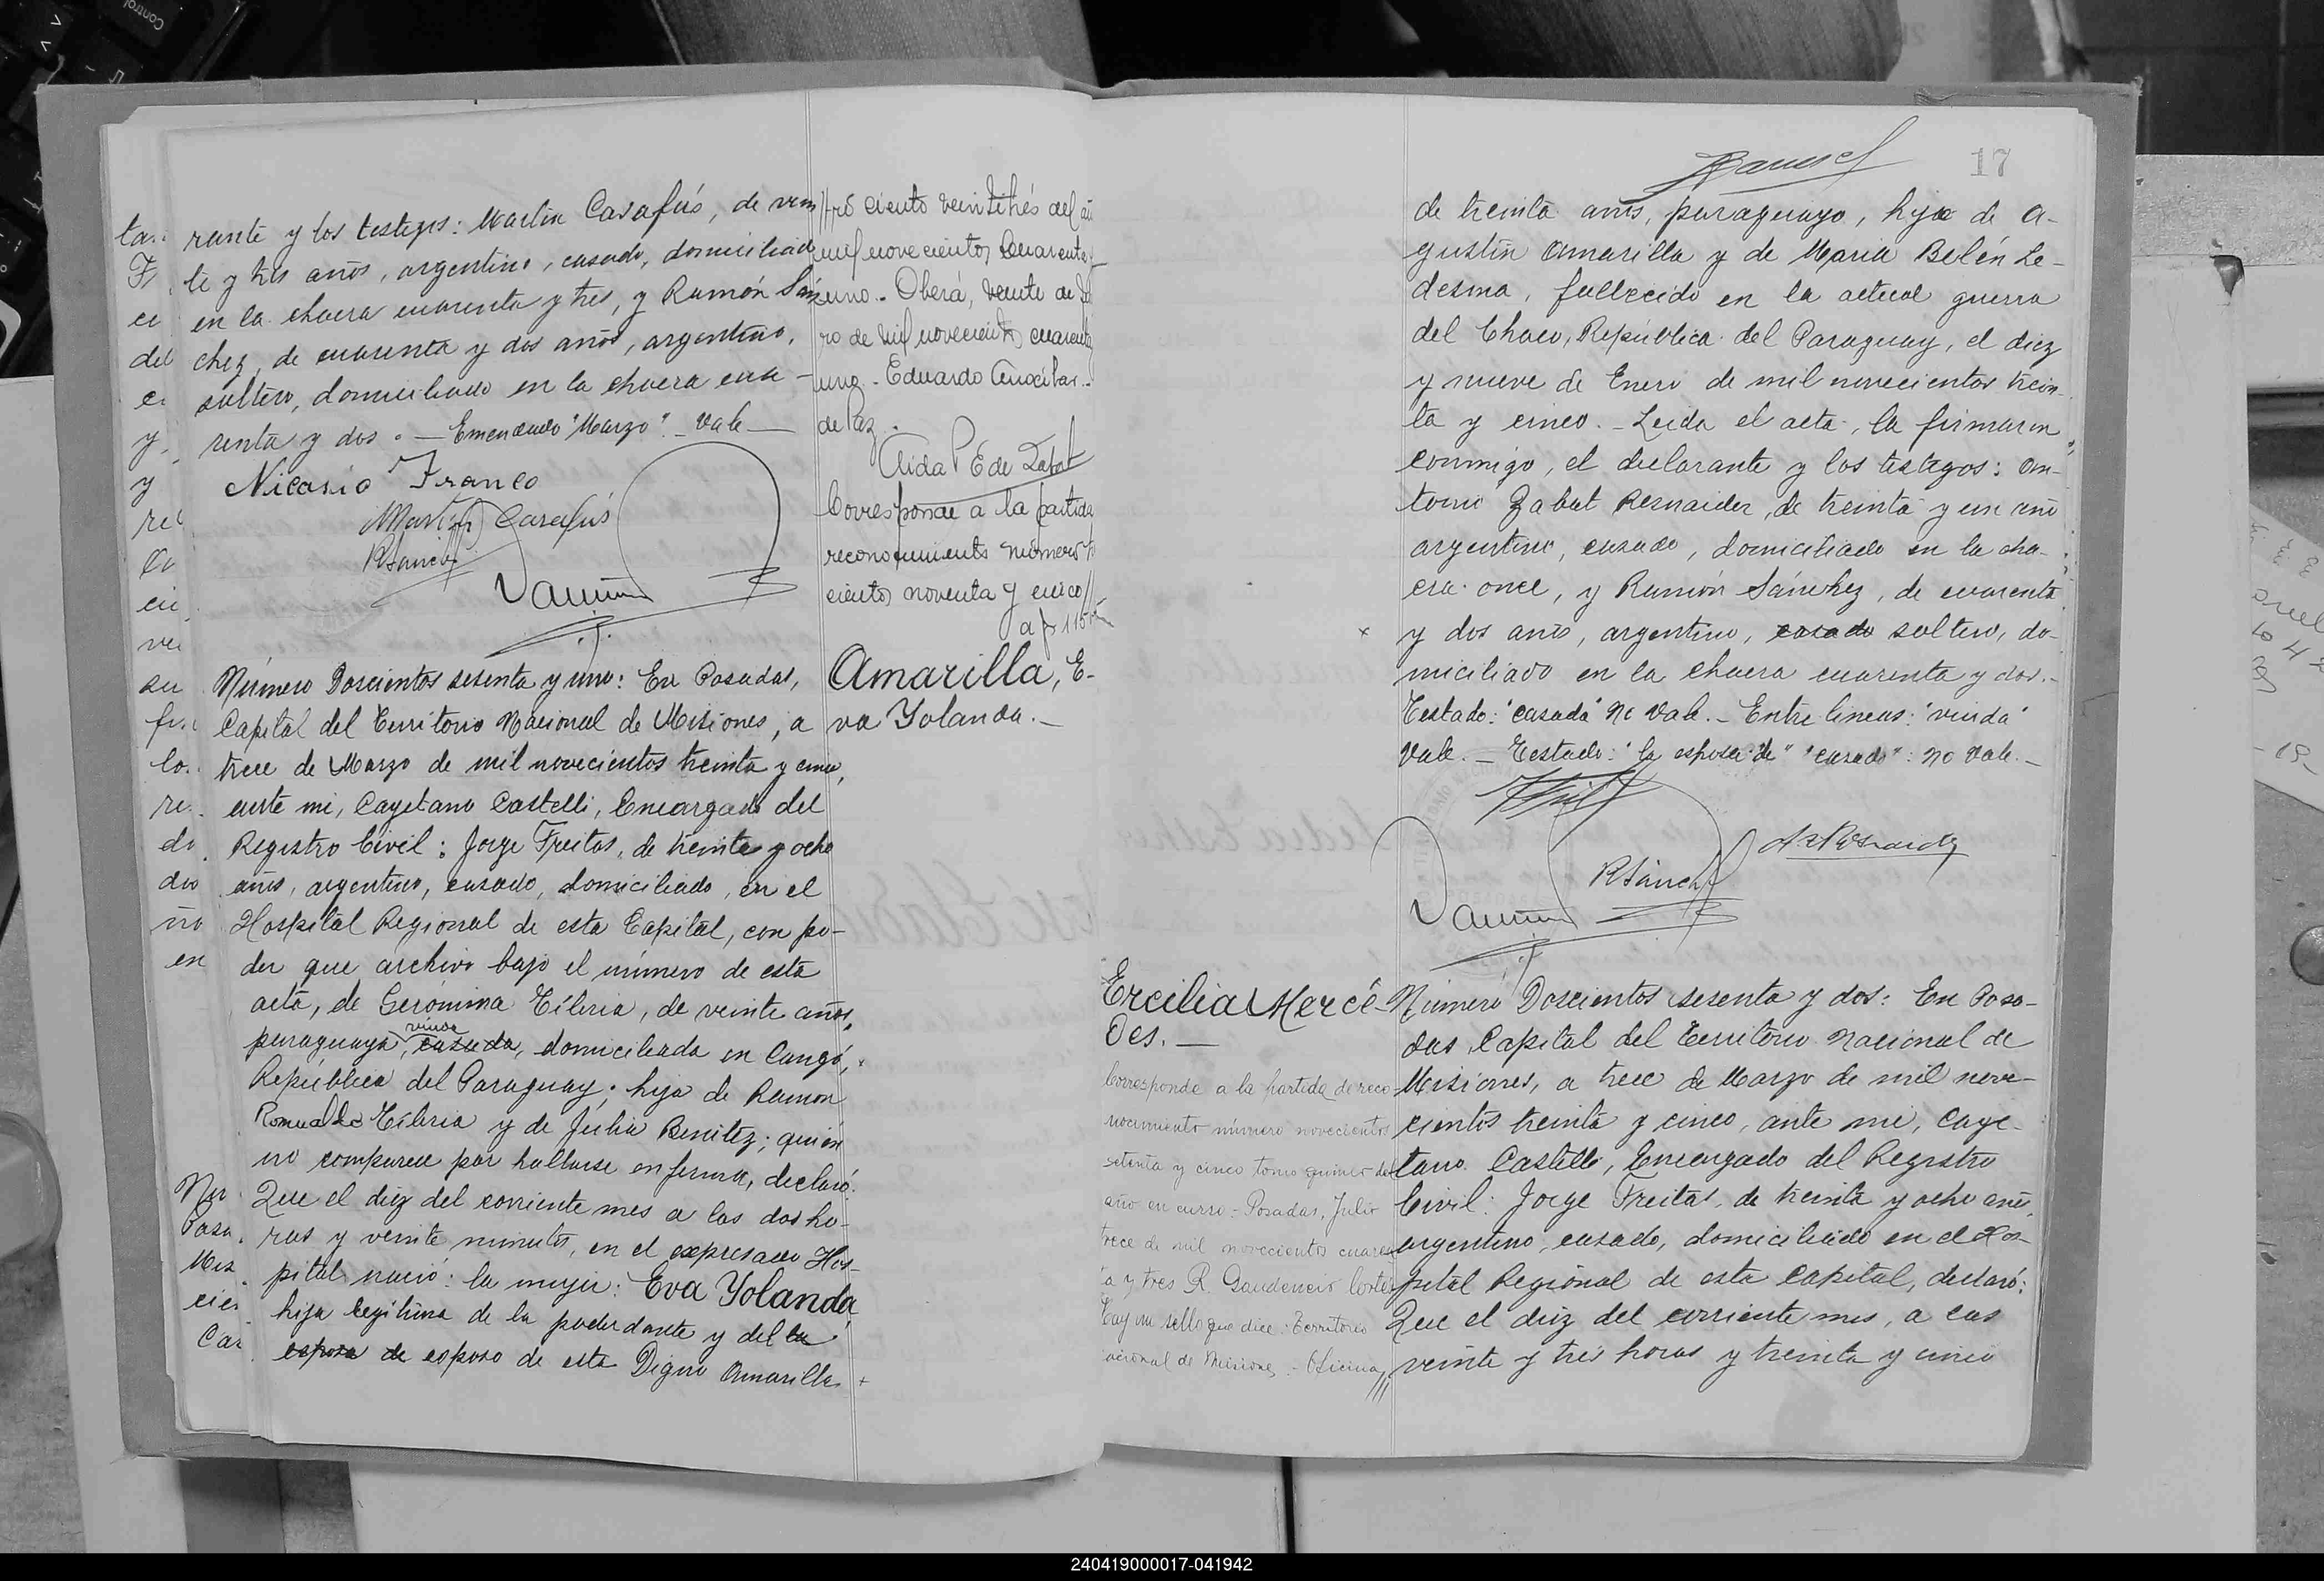 rante y los testigos: Martin Casafús, de vein
te y tres años, argentino, casado, domiciliado
en la chacra cuarenta y tres, y Ramón Sán
chez, de cuarenta y dos años, argentino,
soltero, domiciliado en la chacra cua-
renta y dos. — Emendado "Marzo" - Vale —
Nicasio Franco
Martin Casafús
RSanchez
Número Doscientos sesenta y uno: En Posadas,
Capital del Territorio Nacional de Misiones, a
trece de Marzo de mil novecientos treinta y cinco,
ante mi, Cayetano Castelli, Encargado del
Registro Civil: Jorge Freitas, de treinta y ocho
años, argentino, casado, domiciliado, en el
Hospital Regional de esta Capital, con po-
der que archivo bajo el número de esta
acta, de Gerónima Silveria, de veinte años,
paraguaya, viuda casada, domiciliada en Cangó,
República del Paraguay; hija de Ramon
Romualdo y de Júlia Benitez; quién
no comparece por hallarse enferma, declaró:
Que el diez del corriente mes a las dos ho-
ras y veinte minutos, en el expresado Hos-
pital nació: la mujer: Eva Yolanda,
hija legitima de la poderdante y del la
esposa de esposo de esta Digno Amarilla
//tro ciento veintitrés del añ
mil novecientos cuarenta y
uno. - Oberá, veinte de
ro de mil novecientos cuarenta
uno. - Eduardo
de Paz.
Aida P E de
Corresponde a la partida
reconocimiento número
cientos noventa y cinco//
Amarilla, E-
va Yolanda. -
17
de treinta años, paraguayo, hijo de A-
gustin Amarilla y de Maria Belén Le-
desma, fallecido en la actual guerra
del Chaco, República del Paraguay, el diez
y nueve de Enero de mil novecientos trein-
ta y cinco. - Leida el acta, la firmaron
conmigo, el declarante y los testigos: An-
tonio Zabat Resnaider, de treinta y un año
argentino, casado, domiciliado en la cha-
cra once, y Ramón Sánchez, de cuarenta
y dos años, argentino, casado soltero, do-
miciliado en la chacra cuarenta y dos. -
Testado: "casada" no Vale. - Entre lineas: "viuda"
Vale. - Testado: "la esposa de" "casado": no Vale. -
RSánchez
Ercilia Merce-
des. —
Corresponde a la partida de reco
nocimiento número novecientos
setenta y cinco tomo quince del
año en curso. - Posadas, Julio
trece de mil novecientos cuaren
ta y tres R. Gaudencio Cortes
Hay un sello que dice: Territorio
nacional de Misiones. - Oficina///
Número Doscientos sesenta y dos: En Posa-
das, Capital del Territorio Nacional de
Misiones, a trece de Marzo de mil nove-
cientos treinta y cinco, ante mi, Caye-
tano Castelli, Encargado del Registro
Civil: Jorge Freitas, de treinta y ocho años,
argentino, casado, domiciliado en el Hos-
pital Regional de esta Capital, declaró:
Que el diez del corriente mes, a las
veinte y tres horas y treinta y cinco
240419000017-041942